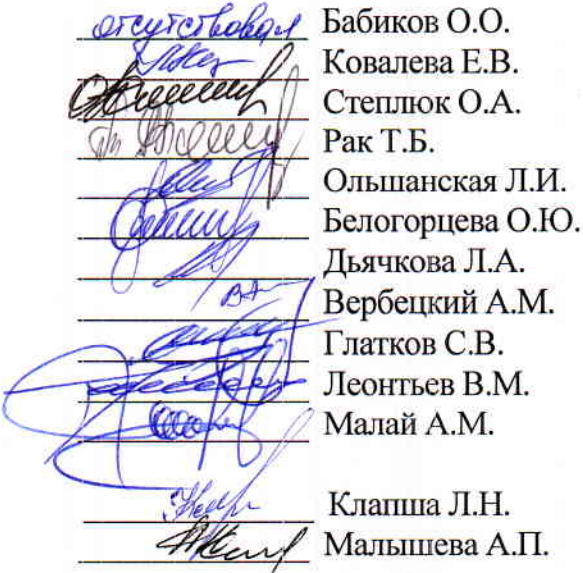 отсутствовал Бабиков О.О.
Ковалева Е.В.
Степлюк О.А.
Рак Т.Б.
Ольшанская Л.И.
Белогорцева О.Ю.
Дьячкова Л.А.
Вербецкий А.М.
Глатков С.В.
Леонтьев В.М.
Малай А.М.
Клапша Л.Н.
Малышева А.П.